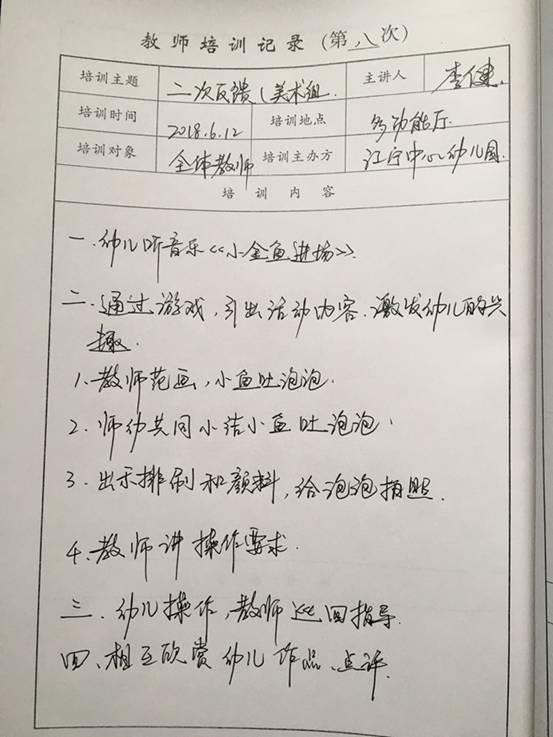 教师培训记录(第八次)
培训主题 二次反馈(美术组 主讲人 李健.
培训时间 2018.6.12 培训地点 多功能厅.
培训对象 全体教师 培训主办方 江宁中心幼儿园.
培训内容
一.幼儿听音乐《小金鱼进场》.
二.通过游戏,引出活动内容.激发幼儿的兴
趣.
1.教师范画,小鱼吐泡泡.
2.师幼共同小结小鱼吐泡泡.
3.出示排刷和颜料,给泡泡拍照.
4.教师讲操作要求.
三.幼儿操作,教师巡回指导.
四、相互欣赏幼儿作品、点评.